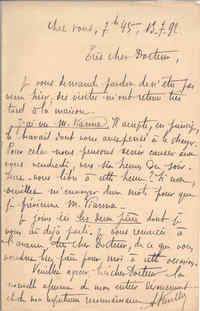 chez vous, 7h 45m, 13.7.92
Très cher Docteur,
Je vous demande pardon de n'être pas
venu hier, des visites m'ont retenu très
tard à la maison.
J'ai vu M. Vianna. Il accepte, en principe,
le travail dont vous avez pensé à le charger.
Pour cela nous pensons venir causer avec
vous vendredi, vers six heures du soir.
Serez-vous libre à cette heure? Si non,
veuillez m'envoyer deux mots pour que
je prévienne M. Vianna.
Je joins ici les deux
nous ai déjà parlé. Je vous remercie à
l'avance, très cher Docteur, de ce que vous
voudrez bien faire pour moi à cette occasion.
Veuillez agréer, très cher Docteur, la
nouvelle assurance de mon entier dévouement
et de mon